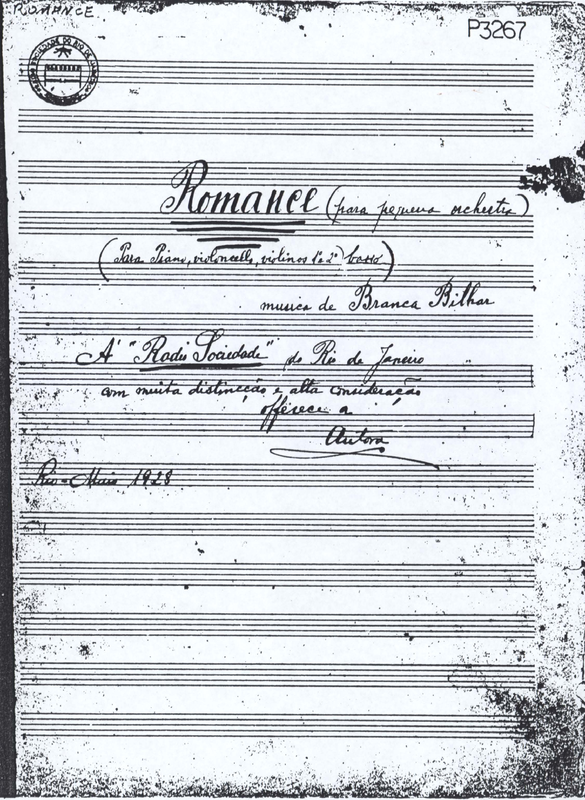 ROMANCE
P3267
Romance (para pequena orchestra)
(Para Piano, violoncello, violinos 1º e 2º, basso)
musica de Branca Bilhar
Á "Radio Sociedade" do Rio de Janeiro
com muita distincção e alta consideração
offerece a
Autora
Rio - Maio 1928